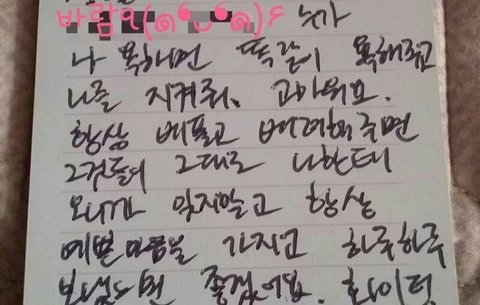 바람 ੧(๑❛ᴗ❛๑)۶ 누가
나 욕하면 똑같이 욕해주고
나를 지켜줘. 고마워요.
항상 베풀고 배려해주면
그것들이 그대로 나한테
오니까 잊지말고 항상
예쁜마음을 가지고 하루하루
보냈으면 좋겠어요. 화이팅